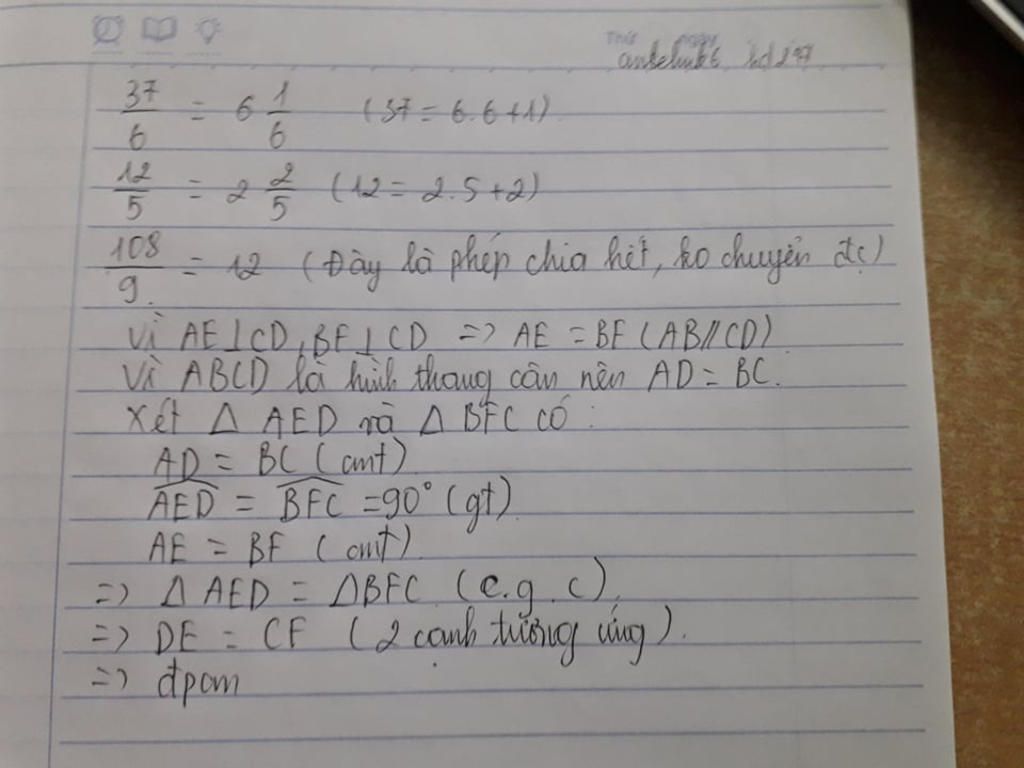 Thứ ngày
37/6 = 6 1/6 (37 = 6.6+1)
12/5 = 2 2/5 (12 = 2.5+2)
108/9. = 12 (Đây là phép chia hết, ko chuyển đc)
Vì AE⊥CD, BF⊥CD => AE = BF (AB//CD)
Vì ABCD là hình thang cân nên AD = BC.
Xét Δ AED và Δ BFC có :
AD = BC (cmt)
\widehat{AED} = \widehat{BFC} = 90° (gt)
AE = BF (cmt)
=> Δ AED = ΔBFC (c.g.c)
=> DE = CF (2 cạnh tương ứng).
=> đpcm